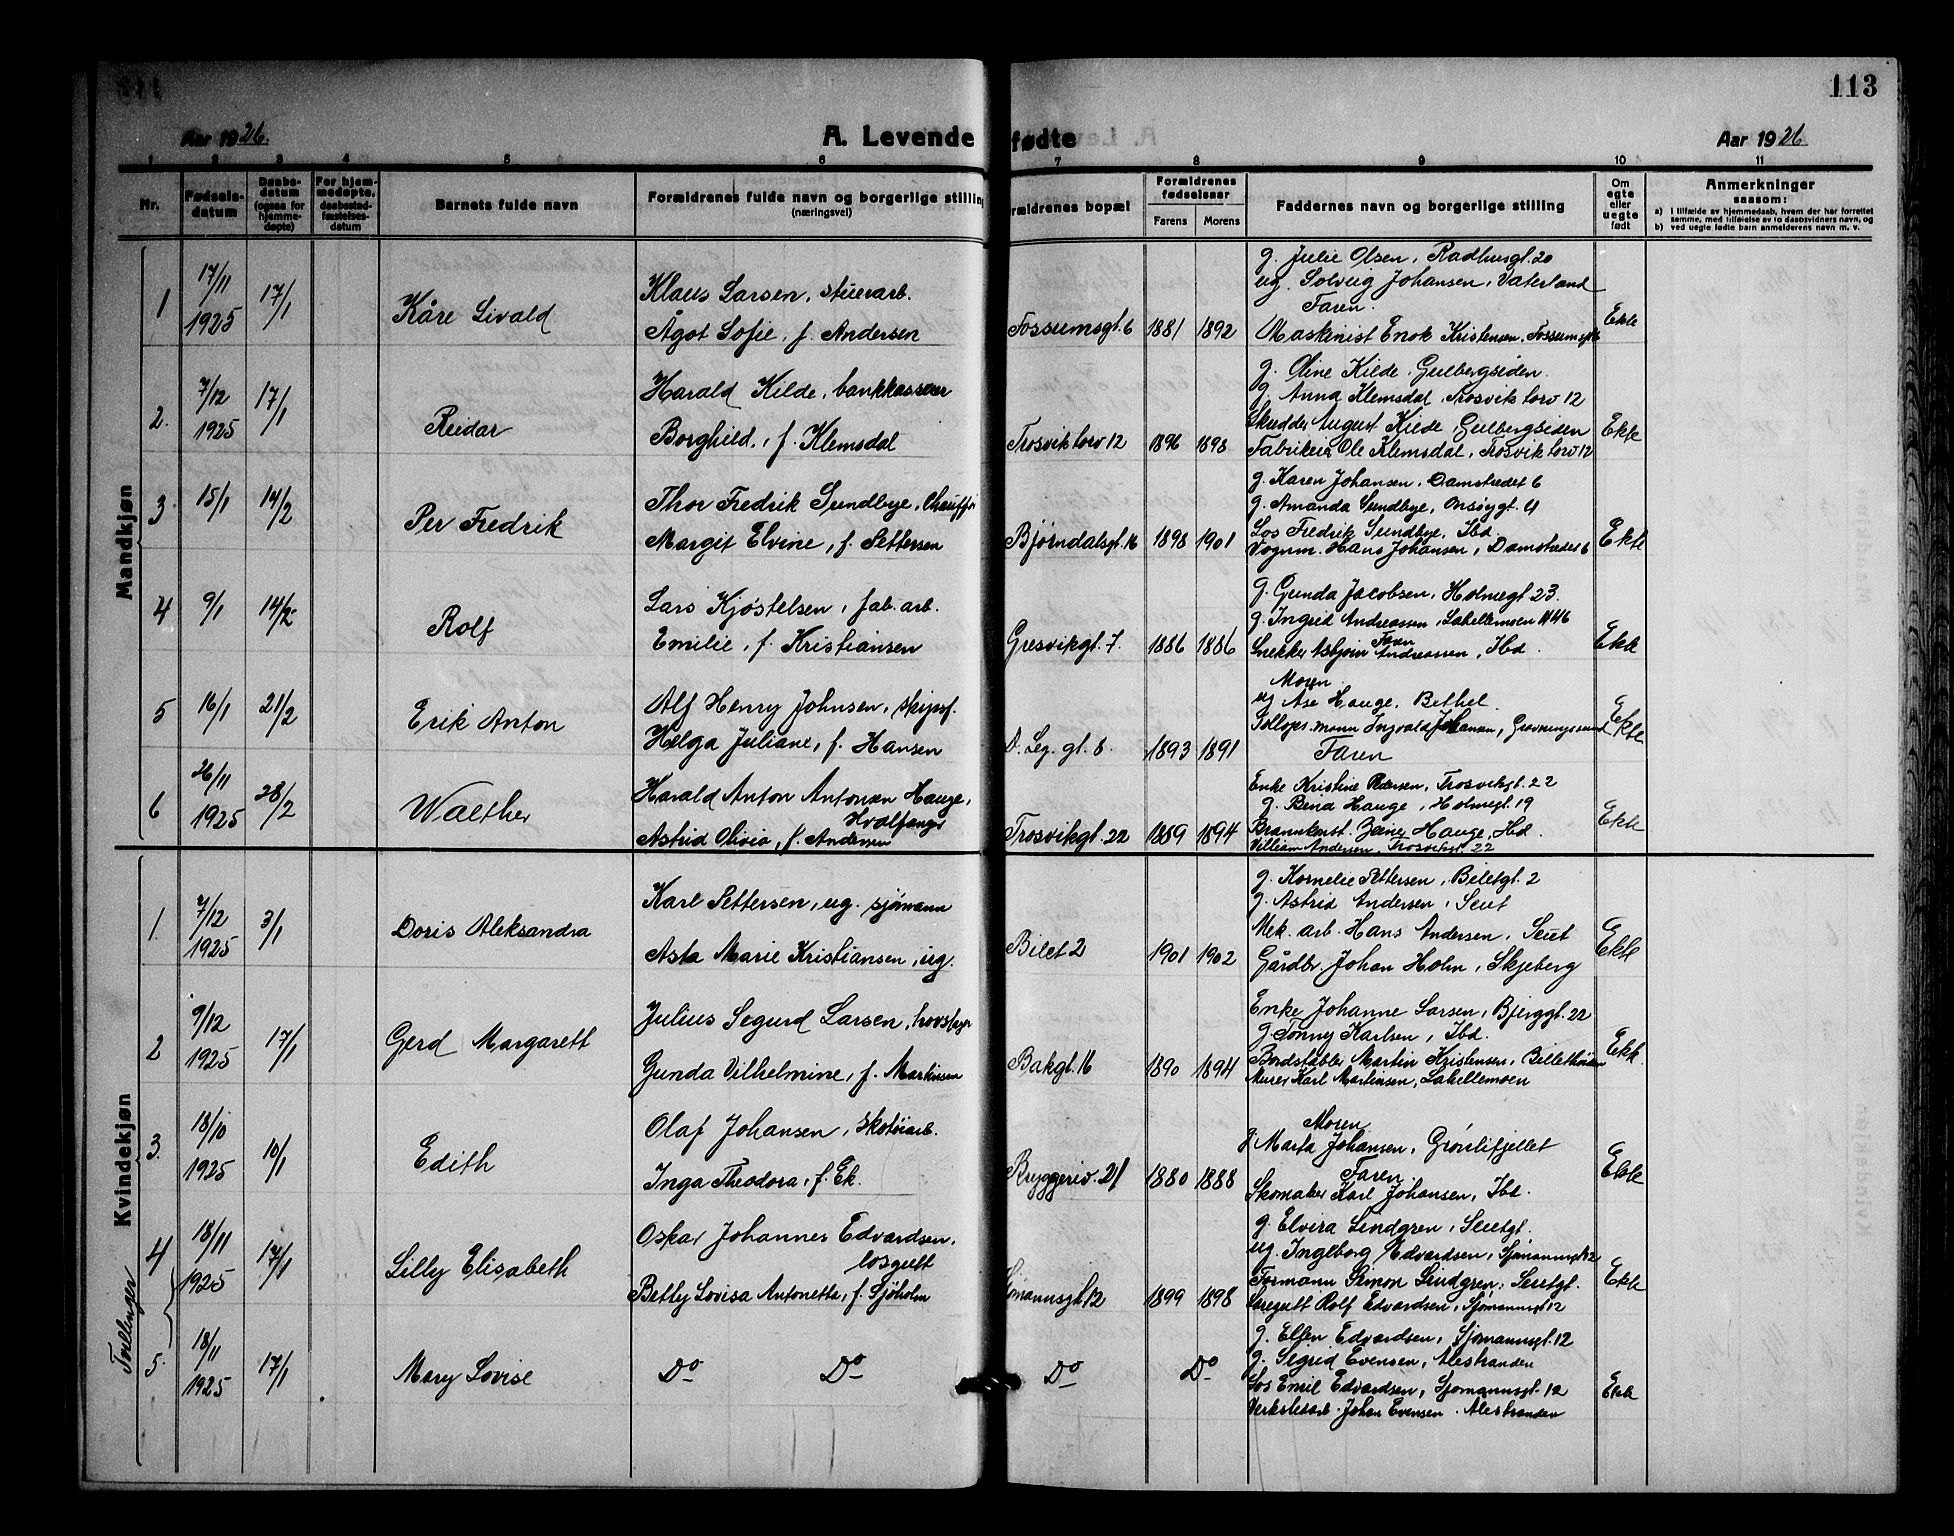 113
Aar 1926.
A. Levende fødte
Aar 1926
1 2 3 4 5 6 7 8 9 10 11
Nr.
Fødselsdatum
Daabsdatum (ogsaa for hjemmedøpte)
For hjemmedøpte, daabsstadfæstelsesdatum
Barnets fulde navn
Forældrenes fulde navn og borgerlige stilling (næringsvei)
Forældrenes bopæl
Forældrenes fødselsaar
Farens Morens
Faddernes navn og borgerlige stilling
Om egte eller uegte født
Anmerkninger saasom:
a) I tilfælde av hjemmedaab, hvem der har forrettet samme, med tilføielse av to daabsvidners navn, og
b) ved uegte fødte barn anmelderens navn m. v.
Mandkjøn
1 17/11 1925 17/1 Kåre Sivald
Klaus Larsen, stuerarb.
Ågot Sofie, f. Andersen
Fossumsgt. 6 1881 1892
g. Julie Olsen, Radhusgt. 20
ug. Solveig Johansen, Vaterland
Faren.
Maskinist Enok Kristensen, Fossumsgt 6
Ekte
2. 7/12 1925 17/1 Reidar
Harald Kilde, bankkasserer
Borghild, f. Klemsdal
Trosvik torv 12 1896 1898
g. Oline Kilde, Gulbergsiden.
g. Anna Klemsdal, Trosvik torv 12
Skrædder August Kilde, Gulbergsiden
Fabrikeier Ole Klemsdal, Trosvik torv 12
Ekte
3 15/1 14/2 Per Fredrik
Thor Fredrik Sundbye, Chauffør
Margit Elvine, f. Pettersen
Bjørndalsgt. 16 1898 1901
g. Karen Johansen, Damstredet 6
g. Amanda Sundbye, Onsøygt. 4
Los Fredrik Sundbye, Ibd.
Vognm. Hans Johansen, Damstredet 6
Ekte
4 9/1 14/2 Rolf
Lars Kjøstelsen, fab. arb.
Emilie, f. Kristiansen
Gresvikgt. 7. 1886 1886
g. Gunda Jacobsen, Holmegt. 23.
g. Ingrid Andreassen, Lahellemoen
Faren
Snekker Asbjørn Andreassen, Ibd.
Ekte
5 16/1 21/2 Erik Anton
Alf Henry Johnsen, skipsf.
Helga Juliane, f. Hansen
gt. 8. 1893 1891
Moren.
ug Åse Hauge, Bethel.
mann Ingvald Johansen,
Faren
Ekte
6 26/11 1925 28/2 Walther
Harald Anton Antonsen Hauge,
Hvalfanger
Astrid Olivia, f. Andersen
Trosvikgt. 22 1889 1894
Enke Kristine Pedersen, Trosvikgt. 22
g. Bina Hauge, Holmegt. 19
Hauge, Ibd.
William Andersen, Trosvikgt. 22
Ekte
Kvindekjøn
1. 7/12 1925 3/1 Doris Aleksandra
Karl Pettersen, ug. sjømann
Asta Marie Kristiansen, ug.
Bilet 2 1901 1902
g. Kornelie Pettersen, Biletgt. 2
g. Astrid Andersen, Seut
Mek. arb. Hans Andersen, Seut
Gårdbr. Johan Holm, Skjeberg
Ekte
2 9/12 1925 17/1 Gerd Margarett
Julius Segurd Larsen,
Gunda Vilhelmine, f. Martinsen
Bakgt. 16 1890 1894
Enke Johanne Larsen, Bjerggt. 22
g. Tonny Karlsen, Ibd.
Bordstabler Martin Kristensen,
Murer Karl Martinsen, Lahellemoen
Ekte
3. 18/10 1925 10/1 Edith
Olaf Johansen, Skotøiarb.
Inga Theodora, f. Ek.
Bryggeriv. 21 1880 1888
Moren
g Marta Johansen, Grønlifjellet
Faren.
Skomaker Karl Johansen, Ibd.
Ekte
Tvillinger
4 18/11 1925 17/1 Lilly Elisabeth
Oskar Johannes Edvardsen,
losgutt
Betty Lovisa Antonette, f. Sjöholm
Sjømannsgt. 12 1899 1898
g. Elvira Lindgren, Seutgt.
ug. Ingeborg Edvardsen, Sjømannsgt 12
Formann Simon Lindgren, Seutgt.
Rolf Edvardsen, Sjømannsgt 12
Ekte
5. 18/11 1925 17/1 Mary Lovise
Do Do Do Do
g. Ellen Edvardsen, Sjømannsgt. 12
g. Sigrid Evensen, Alestranden
Los Emil Edvardsen, Sjomannsgt. 12
Verkstedarb. Johan Evensen, Alestranden
Ekte